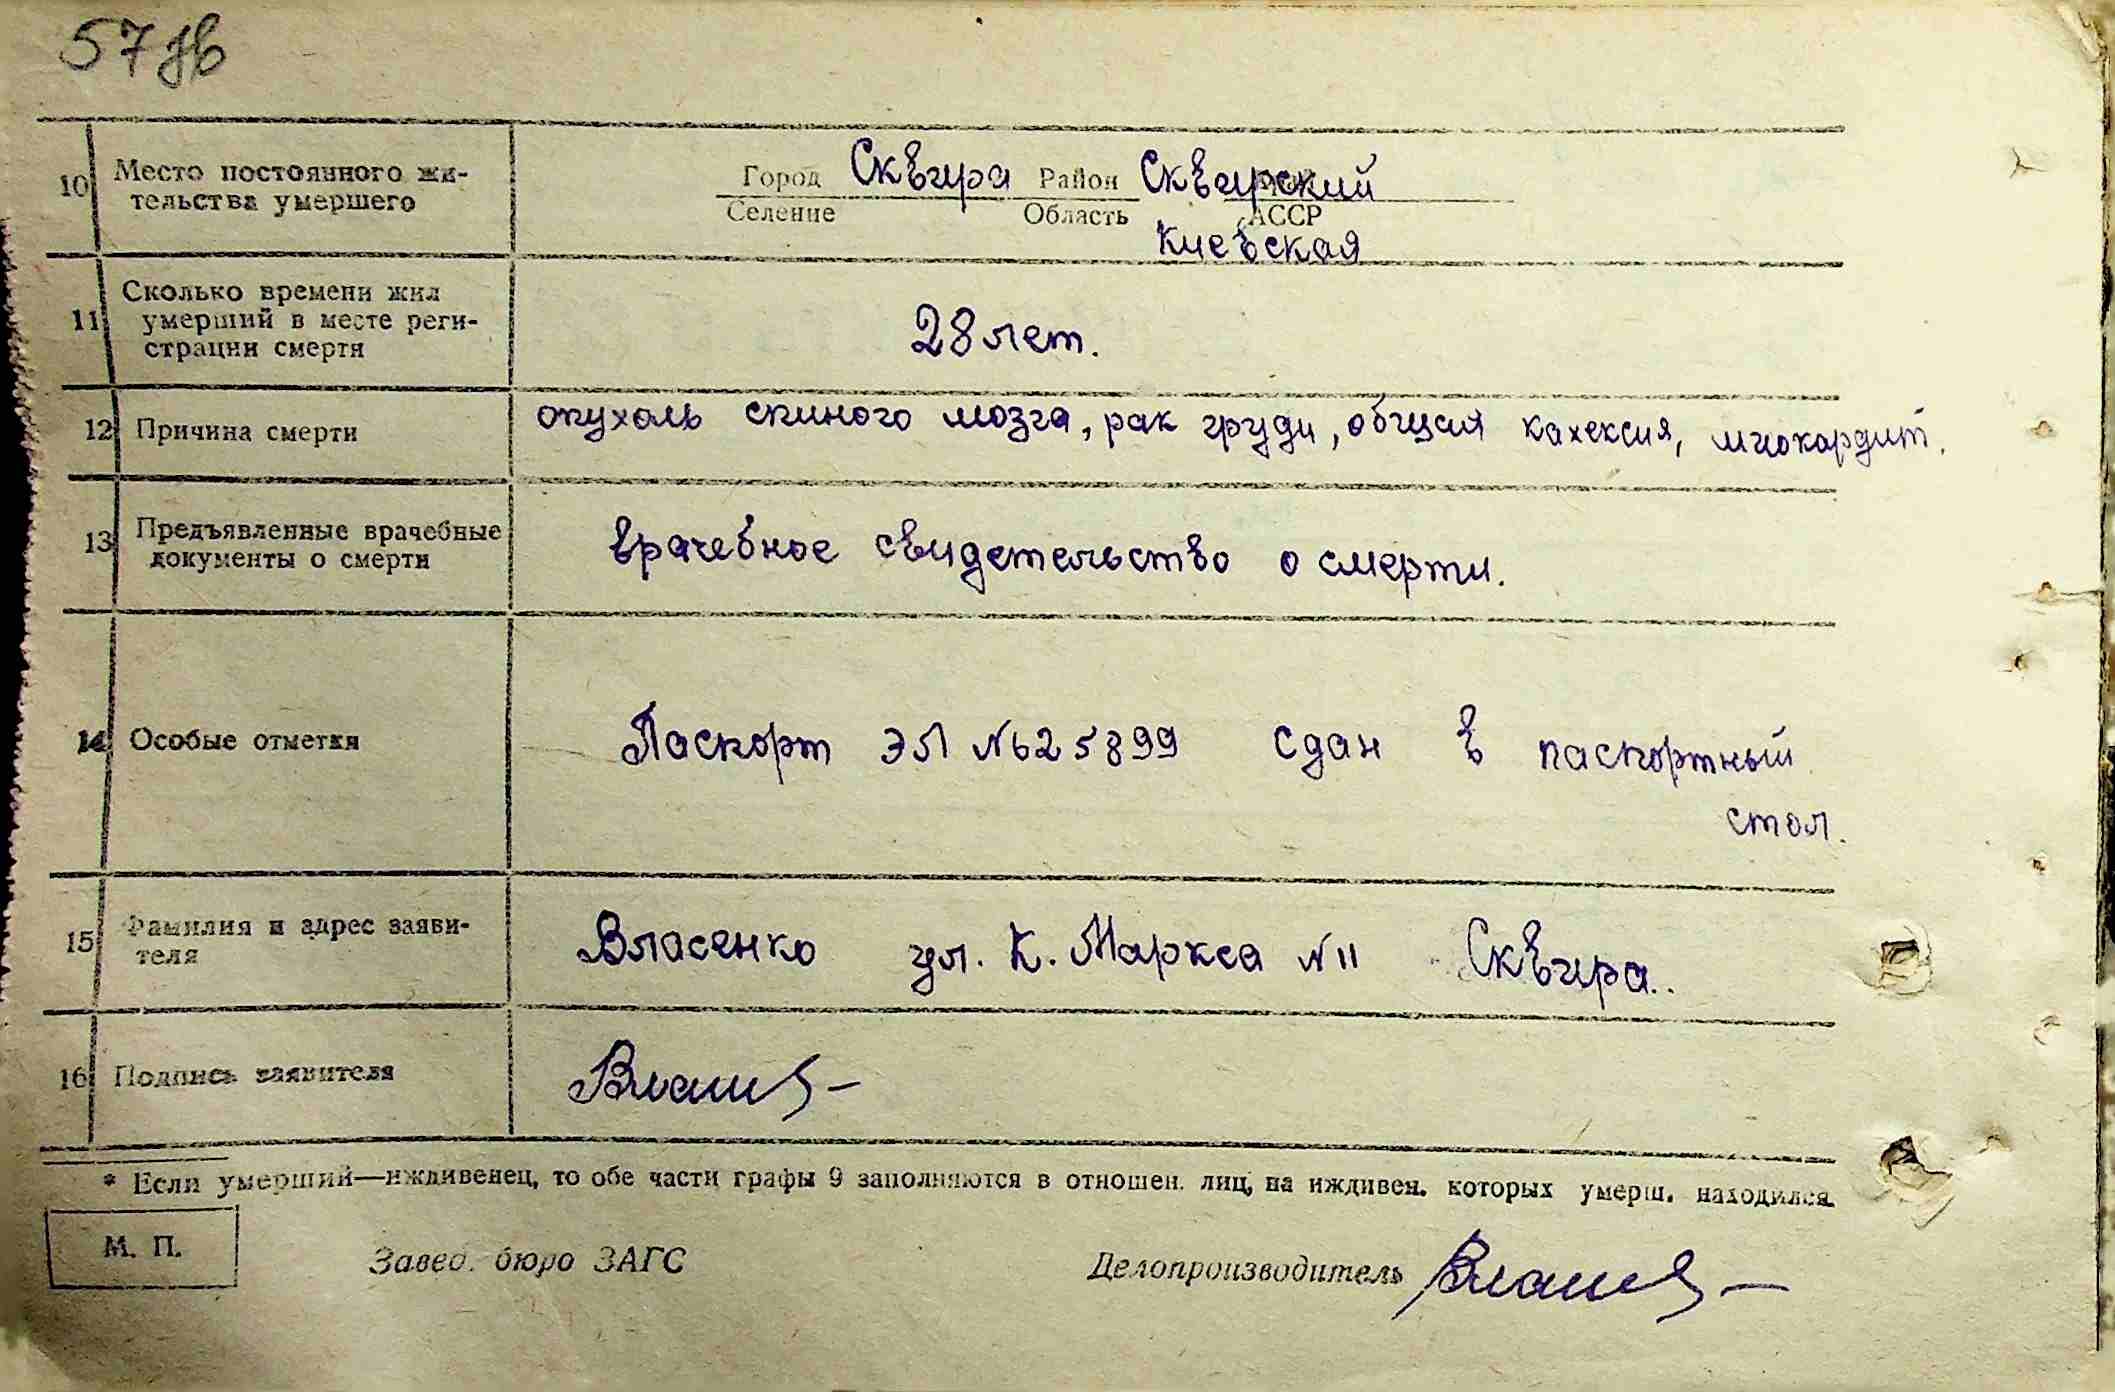 57 зв
10 Место постоянного жи-
тельства умершего
Город Сквира Район Сквирский
Селение Область АССР
Киевская
11 Сколько времени жил
умерший в месте реги-
страции смерти
28 лет.
12 Причина смерти
опухоль спиного мозга, рак груди, общая кахексия, миокардит.
13 Предъявленные врачебные
документы о смерти
врачебное свидетельство о смерти.
14 Особые отметки
Паспорт ЭЛ №625899 сдан в паспортный
стол.
15 Фамилия и адрес заяви-
теля
Власенко ул. К. Маркса №11 Сквира.
16 Подпись заявителя
* Если умерший—иждивенец, то обе части графы 9 заполняются в отношен. лиц, на иждивен. которых умерш. находился.
М. П.
Завед. бюро ЗАГС Делопроизводитель